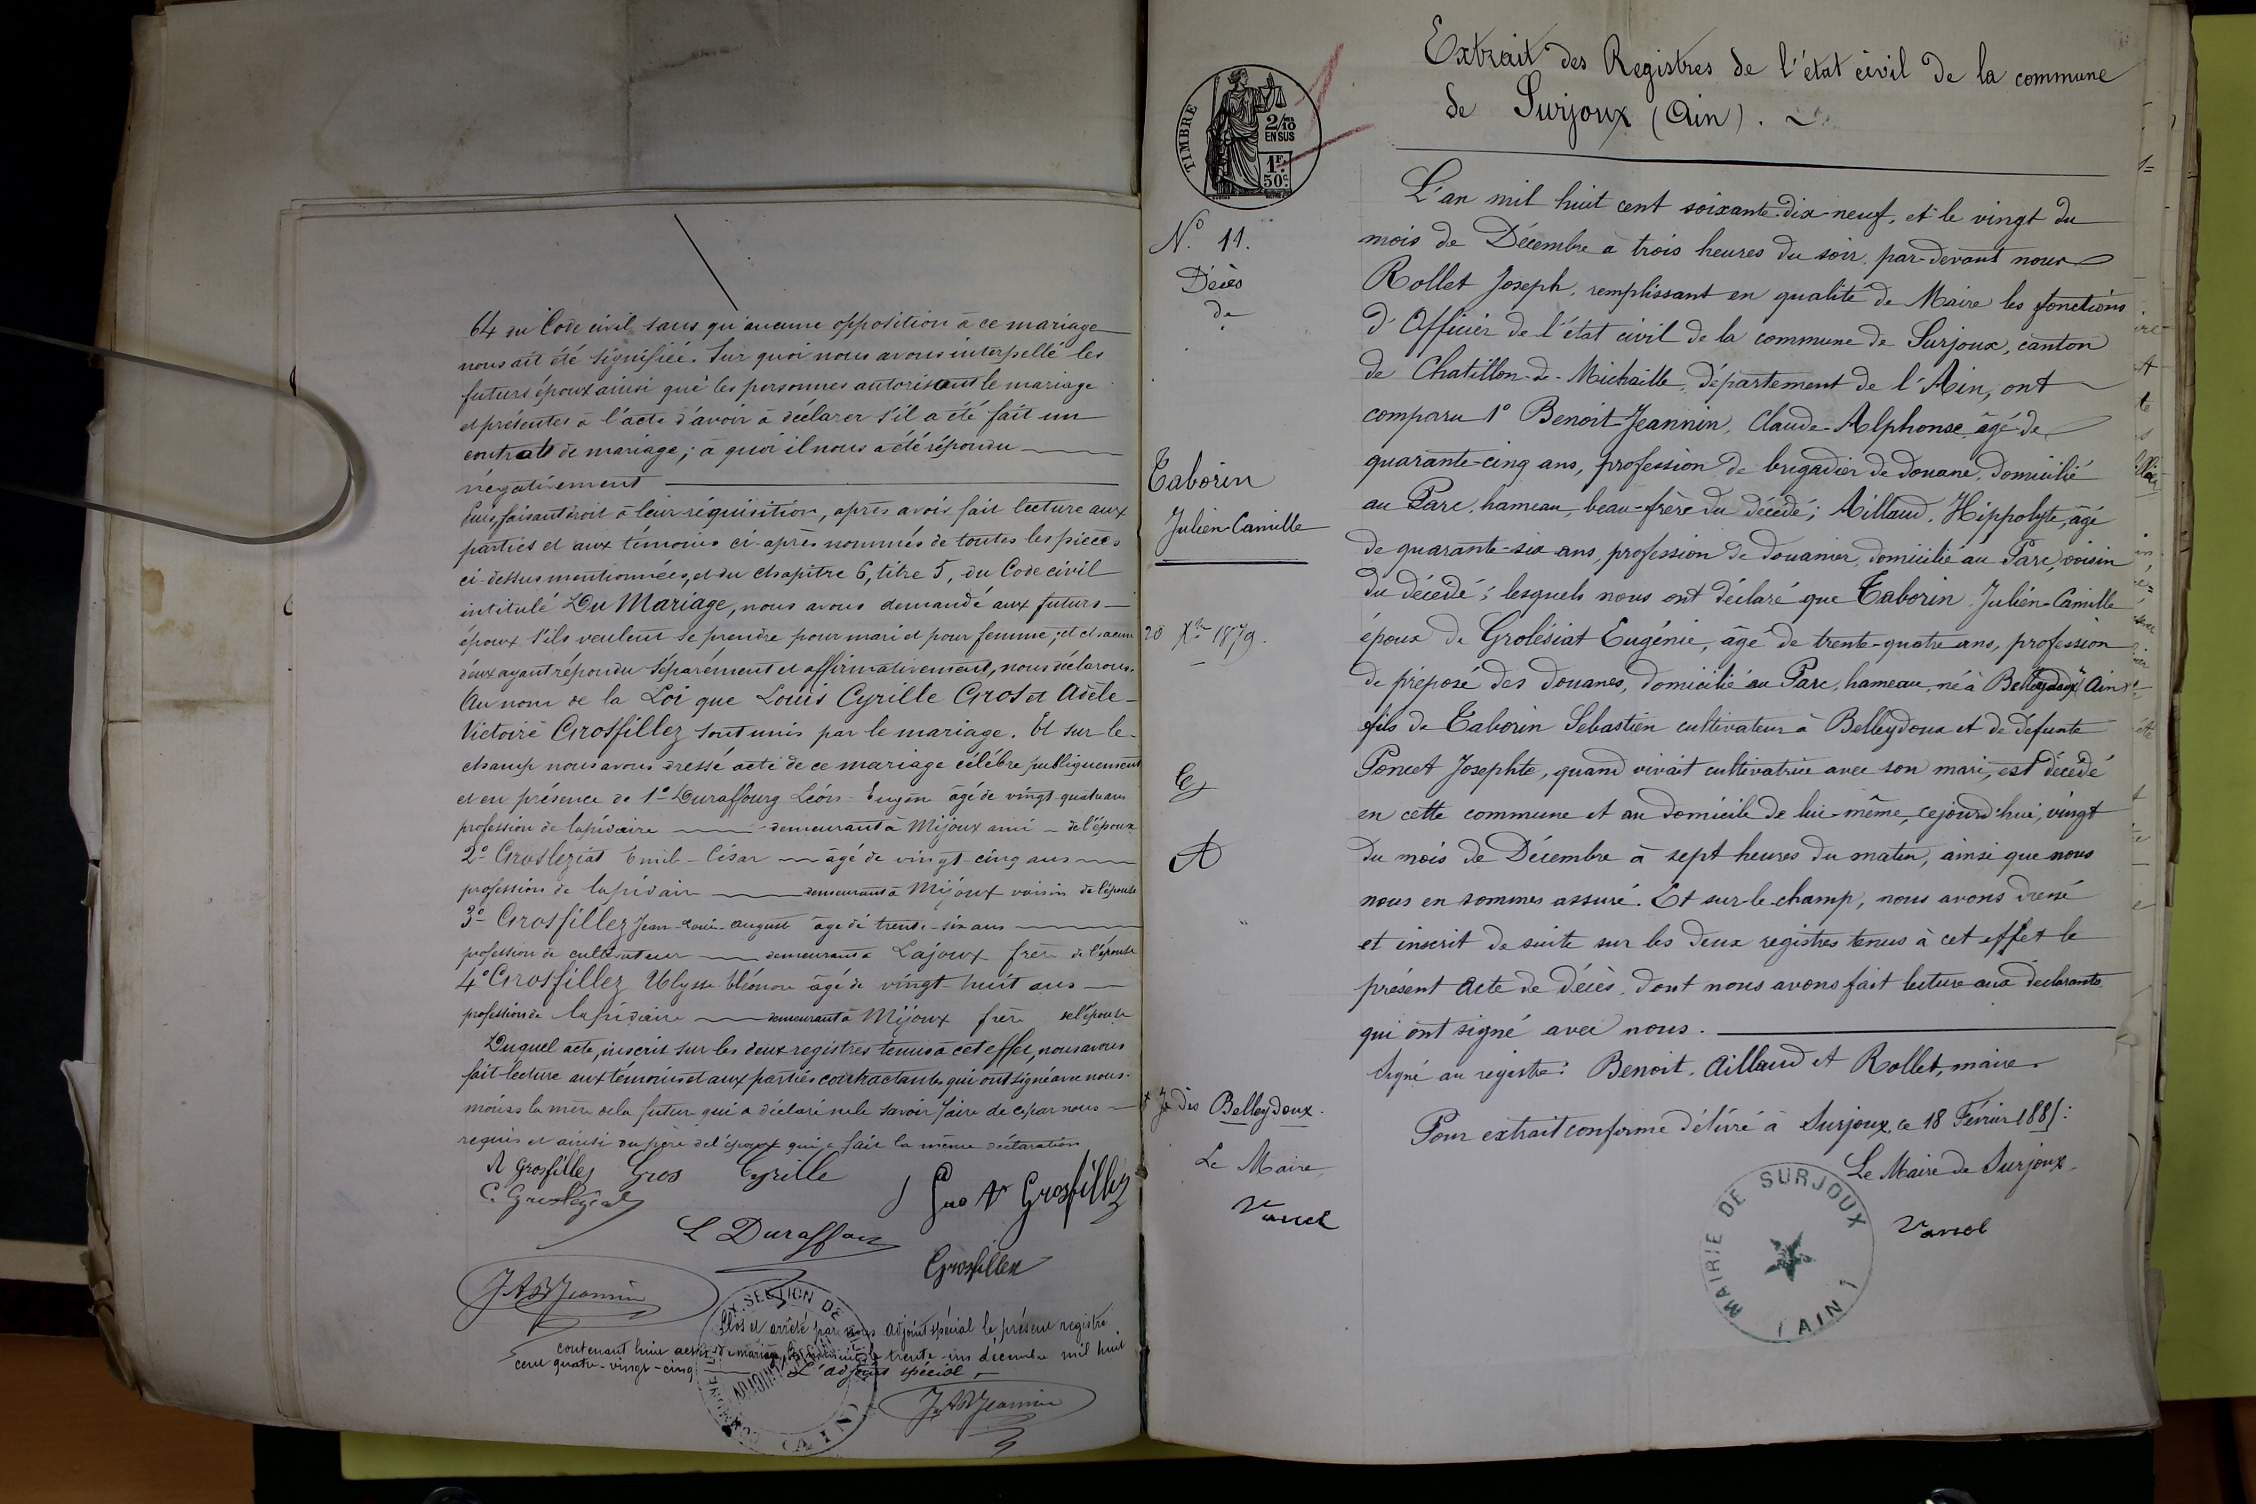 64 du Code civil, sans qu'aucune opposition à ce mariage
nous ait été signifiée. Sur quoi nous avons interpellé les
futurs époux ainsi que les personnes autorisant le mariage
et présentes à l'acte d'avoir à déclarer s'il a été fait un
contrat de mariage; à quoi il nous a été répondu
négativement
Puis, faisant droit à leur réquisition, après avoir fait lecture aux
parties et aux témoins ci-après nommés de toutes les pièces
ci-dessus mentionnées, et du chapitre 6, titre 5, du Code civil
intitulé Du Mariage, nous avons demandé aux futurs
époux s'ils veulent se prendre pour mari et pour femme; et chacun
d'eux ayant répondu séparément et affirmativement, nous déclarons
Au nom de la Loi que Louis Cyrille Gros et Adèle
Victoire Grosfillez sont unis par le mariage. Et sur le
champ nous avons dressé acte de ce mariage célébré publiquement
et en présence de 1° Duraffourg Léon-Eugène âgé de vingt-quatre ans
profession de lapidaire demeurant à Mijoux ami de l'époux
2° Grosleziat Emile-César âgé de vingt cinq ans
profession de lapidaire demeurant à Mijoux voisin de l'épouse
3° Grosfillez Jean-Louis-Auguste âgé de trente-six ans
profession de cultivateur demeurant à Lajoux frère de l'épouse
4° Grosfillez Ulysse Eléonore âgé de vingt-huit ans
profession de lapidaire demeurant à Mijoux frère de l'épouse
Duquel acte, inscrit sur les deux registres tenus à cet effet, nous avons
fait lecture aux témoins et aux parties contractantes qui ont signé avec nous
moins la mère de la future qui a déclaré ne le savoir faire de ce par nous
requis et ainsi du père de l'époux qui a fait la même déclaration
A Grosfillez Gros Cyrille
C. Grosleziat Gros A Grosfillez
L Duraffour
Grosfillez
J A B Jeannin
Clos et arrêté par nous adjoint spécial le présent registre
contenant huit actes de mariage trente-un décembre mil huit
cent quatre-vingt-cinq
L'adjoint spécial
J A B Jeannin
SECTION DE
ADJOINT
(AIN)
Extrait des Registres de l'état civil de la commune
de Surjoux (Ain).
TIMBRE
2/10
EN SUS
1F
50c
N° 11.
Décès
de
Taborin
Julien-Camille
20 Xbre 1879.
L'an mil huit cent soixante-dix-neuf, et le vingt du
mois de Décembre à trois heures du soir, par-devant nous
Rollet Joseph, remplissant en qualité de Maire les fonctions
d'Officier de l'état civil de la commune de Surjoux, canton
de Chatillon-de-Michaille, département de l'Ain, ont
comparu 1° Benoit-Jeannin, Claude-Alphonse âgé de
quarante-cinq ans, profession de brigadier de douane, domicilié
au Parc, hameau, beau-frère du décédé; Aillaud, Hippolyte, âgé
de quarante-six ans, profession de douanier, domicilié au Parc, voisin
du décédé; lesquels nous ont déclaré que Taborin Julien-Camille
époux de Grolésiat Eugénie, âgé de trente-quatre ans, profession
de préposé des douanes, domicilié au Parc, hameau, né à Belleydoux (Ain)
fils de Taborin Sébastien cultivateur à Belleydoux et de défunte
Poncet Josephte, quand vivait cultivatrice avec son mari, est décédé
en cette commune et au domicile de lui-même, cejourd'hui, vingt
du mois de Décembre à sept heures du matin, ainsi que nous
nous en sommes assuré. Et sur-le-champ, nous avons dressé
et inscrit de suite sur les deux registres tenus à cet effet le
présent acte de décès, dont nous avons fait lecture aux déclarants
qui ont signé avec nous.
Signé au registre: Benoit, Aillaud et Rollet, maire.
Pour extrait conforme délivré à Surjoux, ce 18 Février 1881:
Le Maire de Surjoux
Vanel
MAIRIE DE SURJOUX
(AIN)
Belleydoux.
Le Maire,
Vanel